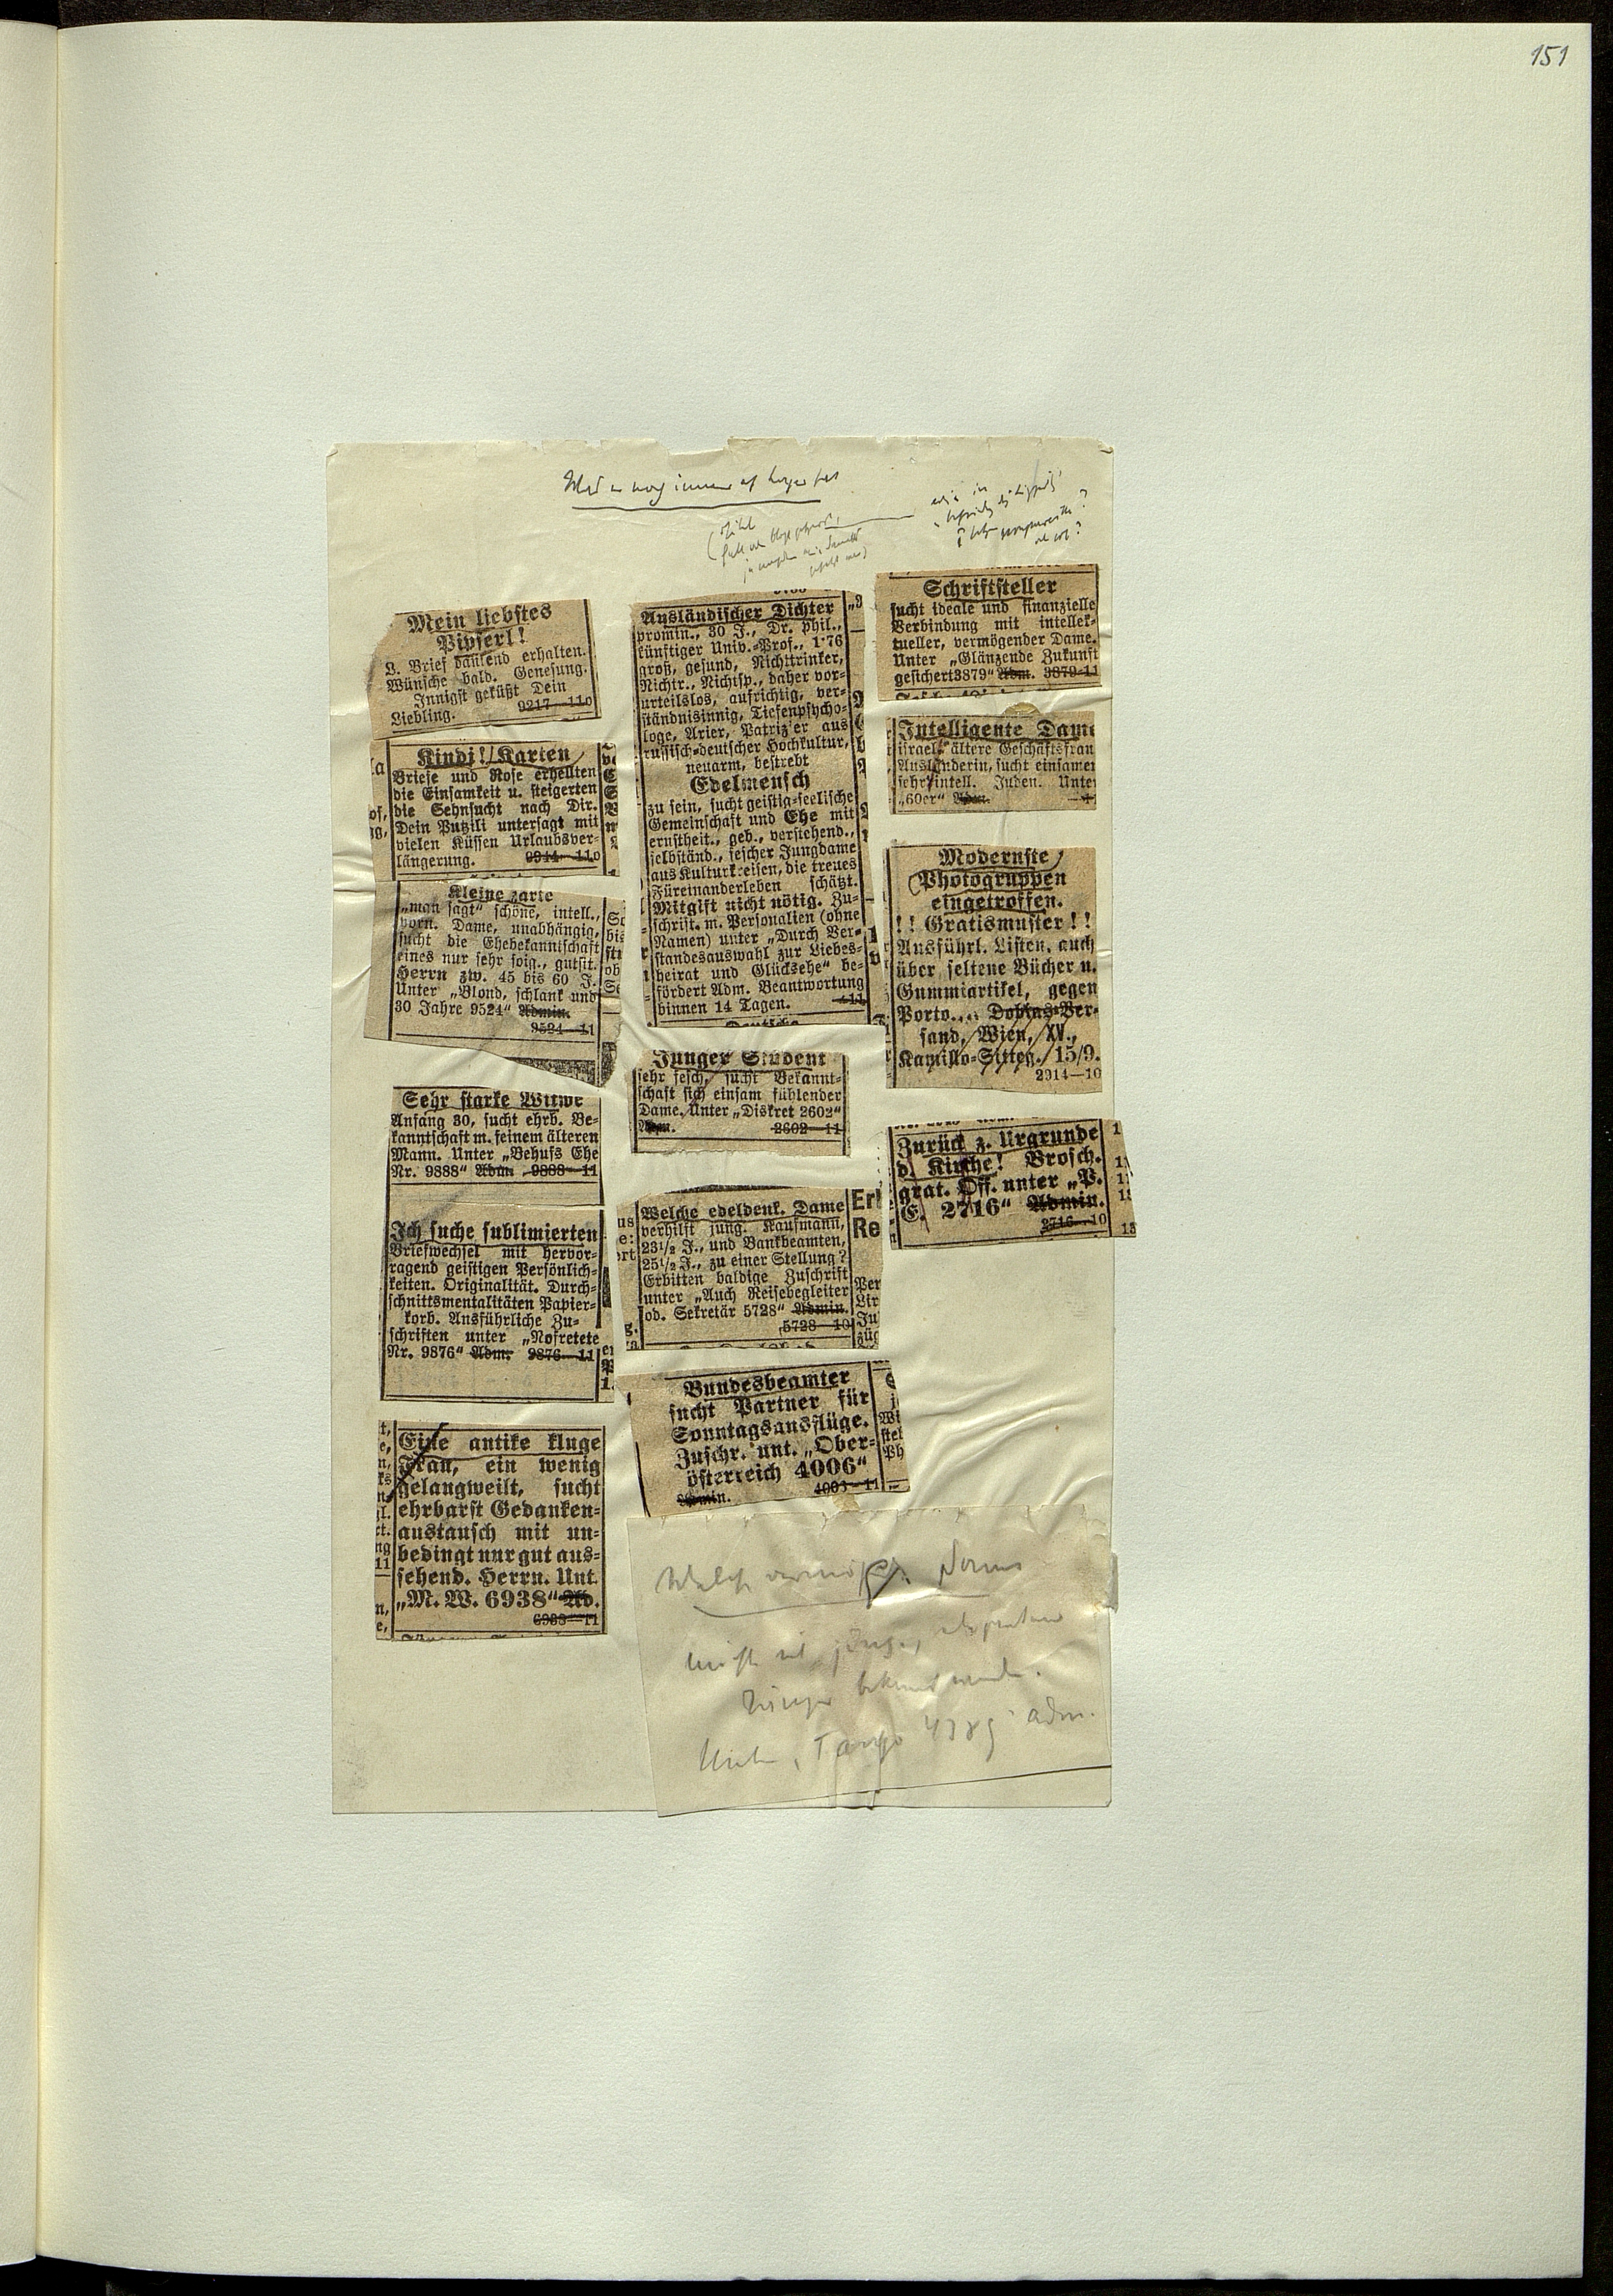 151
Mein liebstes
Pipserl!
L. Brief dankend erhalten.
Wünsche bald. Genesung.
Innigst geküßt Dein
Liebling. 9217—110
Kindi! Karten
Briefe und Rose erhellten
die Einsamkeit u. steigerten
die Sehnsucht nach Dir.
Dein Putzili untersagt mit
vielen Küssen Urlaubsver-
längerung. 9914—110
Kleine zarte
„man sagt“ schöne, intell.,
vorn. Dame, unabhängig,
sucht die Ehebekanntschaft
eines nur sehr soig., gutsit.
Herrn zw. 45 bis 60 J.
Unter „Blond, schlank und
30 Jahre 9524“ Admin.
9524—11
Sehr starke Witwe
Anfang 30, sucht ehrb. Be-
kanntschaft m. feinem älteren
Mann. Unter „Behufs Ehe
Nr. 9888“ Adm. 9888—11
Ich suche sublimierten
Briefwechsel mit hervor-
ragend geistigen Persönlich-
keiten. Originalität. Durch-
schnittsmentalitäten Papier-
korb. Ausführliche Zu-
schriften unter „Nofretete
Nr. 9876“ Adm. 9876—11
Eine antike kluge
Frau, ein wenig
gelangweilt, sucht
ehrbarst Gedanken-
austausch mit un-
bedingt nur gut aus-
sehend. Herrn. Unt.
„M. W. 6938“ Ad.
6938—11
Ausländischer Dichter
promin., 30 J., Dr. phil.,
künftiger Univ.-Prof., 1·76
groß, gesund, Nichttrinker,
Nichtr., Nichtsp., daher vor-
urteilslos, aufrichtig, ver-
ständnisinnig, Tiefenpsycho-
loge, Arier, Patrizier aus
russisch-deutscher Hochkultur,
neuarm, bestrebt
Edelmensch
zu sein, sucht geistig-seelische
Gemeinschaft und Ehe mit
ernstheit., geb., verstehend.,
selbständ., fescher Jungdame
aus Kulturkreisen, die treues
Füreinanderleben schätzt.
Mitgift nicht nötig. Zu-
schrift. m. Personalien (ohne
Namen) unter „Durch Ver-
standesauswahl zur Liebes-
heirat und Glücksehe“ be-
fördert Adm. Beantwortung
binnen 14 Tagen. —11
Junger Student
sehr fesch, sucht Bekannt-
schaft sich einsam fühlender
Dame. Unter „Diskret 2602“
Adm. 2602—11
Welche edeldenk. Dame
verhilft jung. Kaufmann,
23½ J., und Bankbeamten,
25½ J., zu einer Stellung?
Erbitten baldige Zuschrift
unter „Auch Reisebegleiter
od. Sekretär 5728“ Admin.
5728—10
Bundesbeamter
sucht Partner für
Sonntagsausflüge.
Zuschr. unt. „Ober-
österreich 4006“
Admin. 4003—11
Schriftsteller
sucht ideale und finanzielle
Verbindung mit intellek-
tueller, vermögender Dame.
Unter „Glänzende Zukunft
gesichert 3879“ Adm. 3879—11
Intelligente Dame
israel., ältere Geschäftsfrau
Ausländerin, sucht einsamen
sehr intell. Juden. Unter
„60er“ Adm.
Modernste
Photogruppen
eingetroffen.
!! Gratismuster!!
Ausführl. Listen, auch
über seltene Bücher u.
Gummiartikel, gegen
Porto. Versand, Wien, XV.,
Kamillo-Sitteg. 15/9.
2914—10
Zurück z. Urgrunde
d. Kirche! Brosch.
grat. Off. unter „P.
E. 2716“ Admin.
2716—10
Tango 4389 Adm.